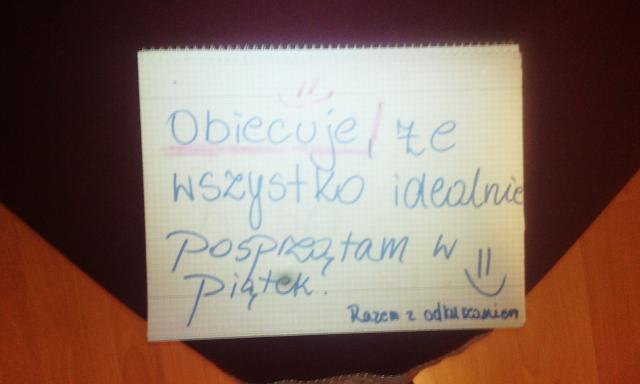 Obiecuje, że
wszystko idealnie
posprzątam w
piątek.
Razem z odkurzaniem